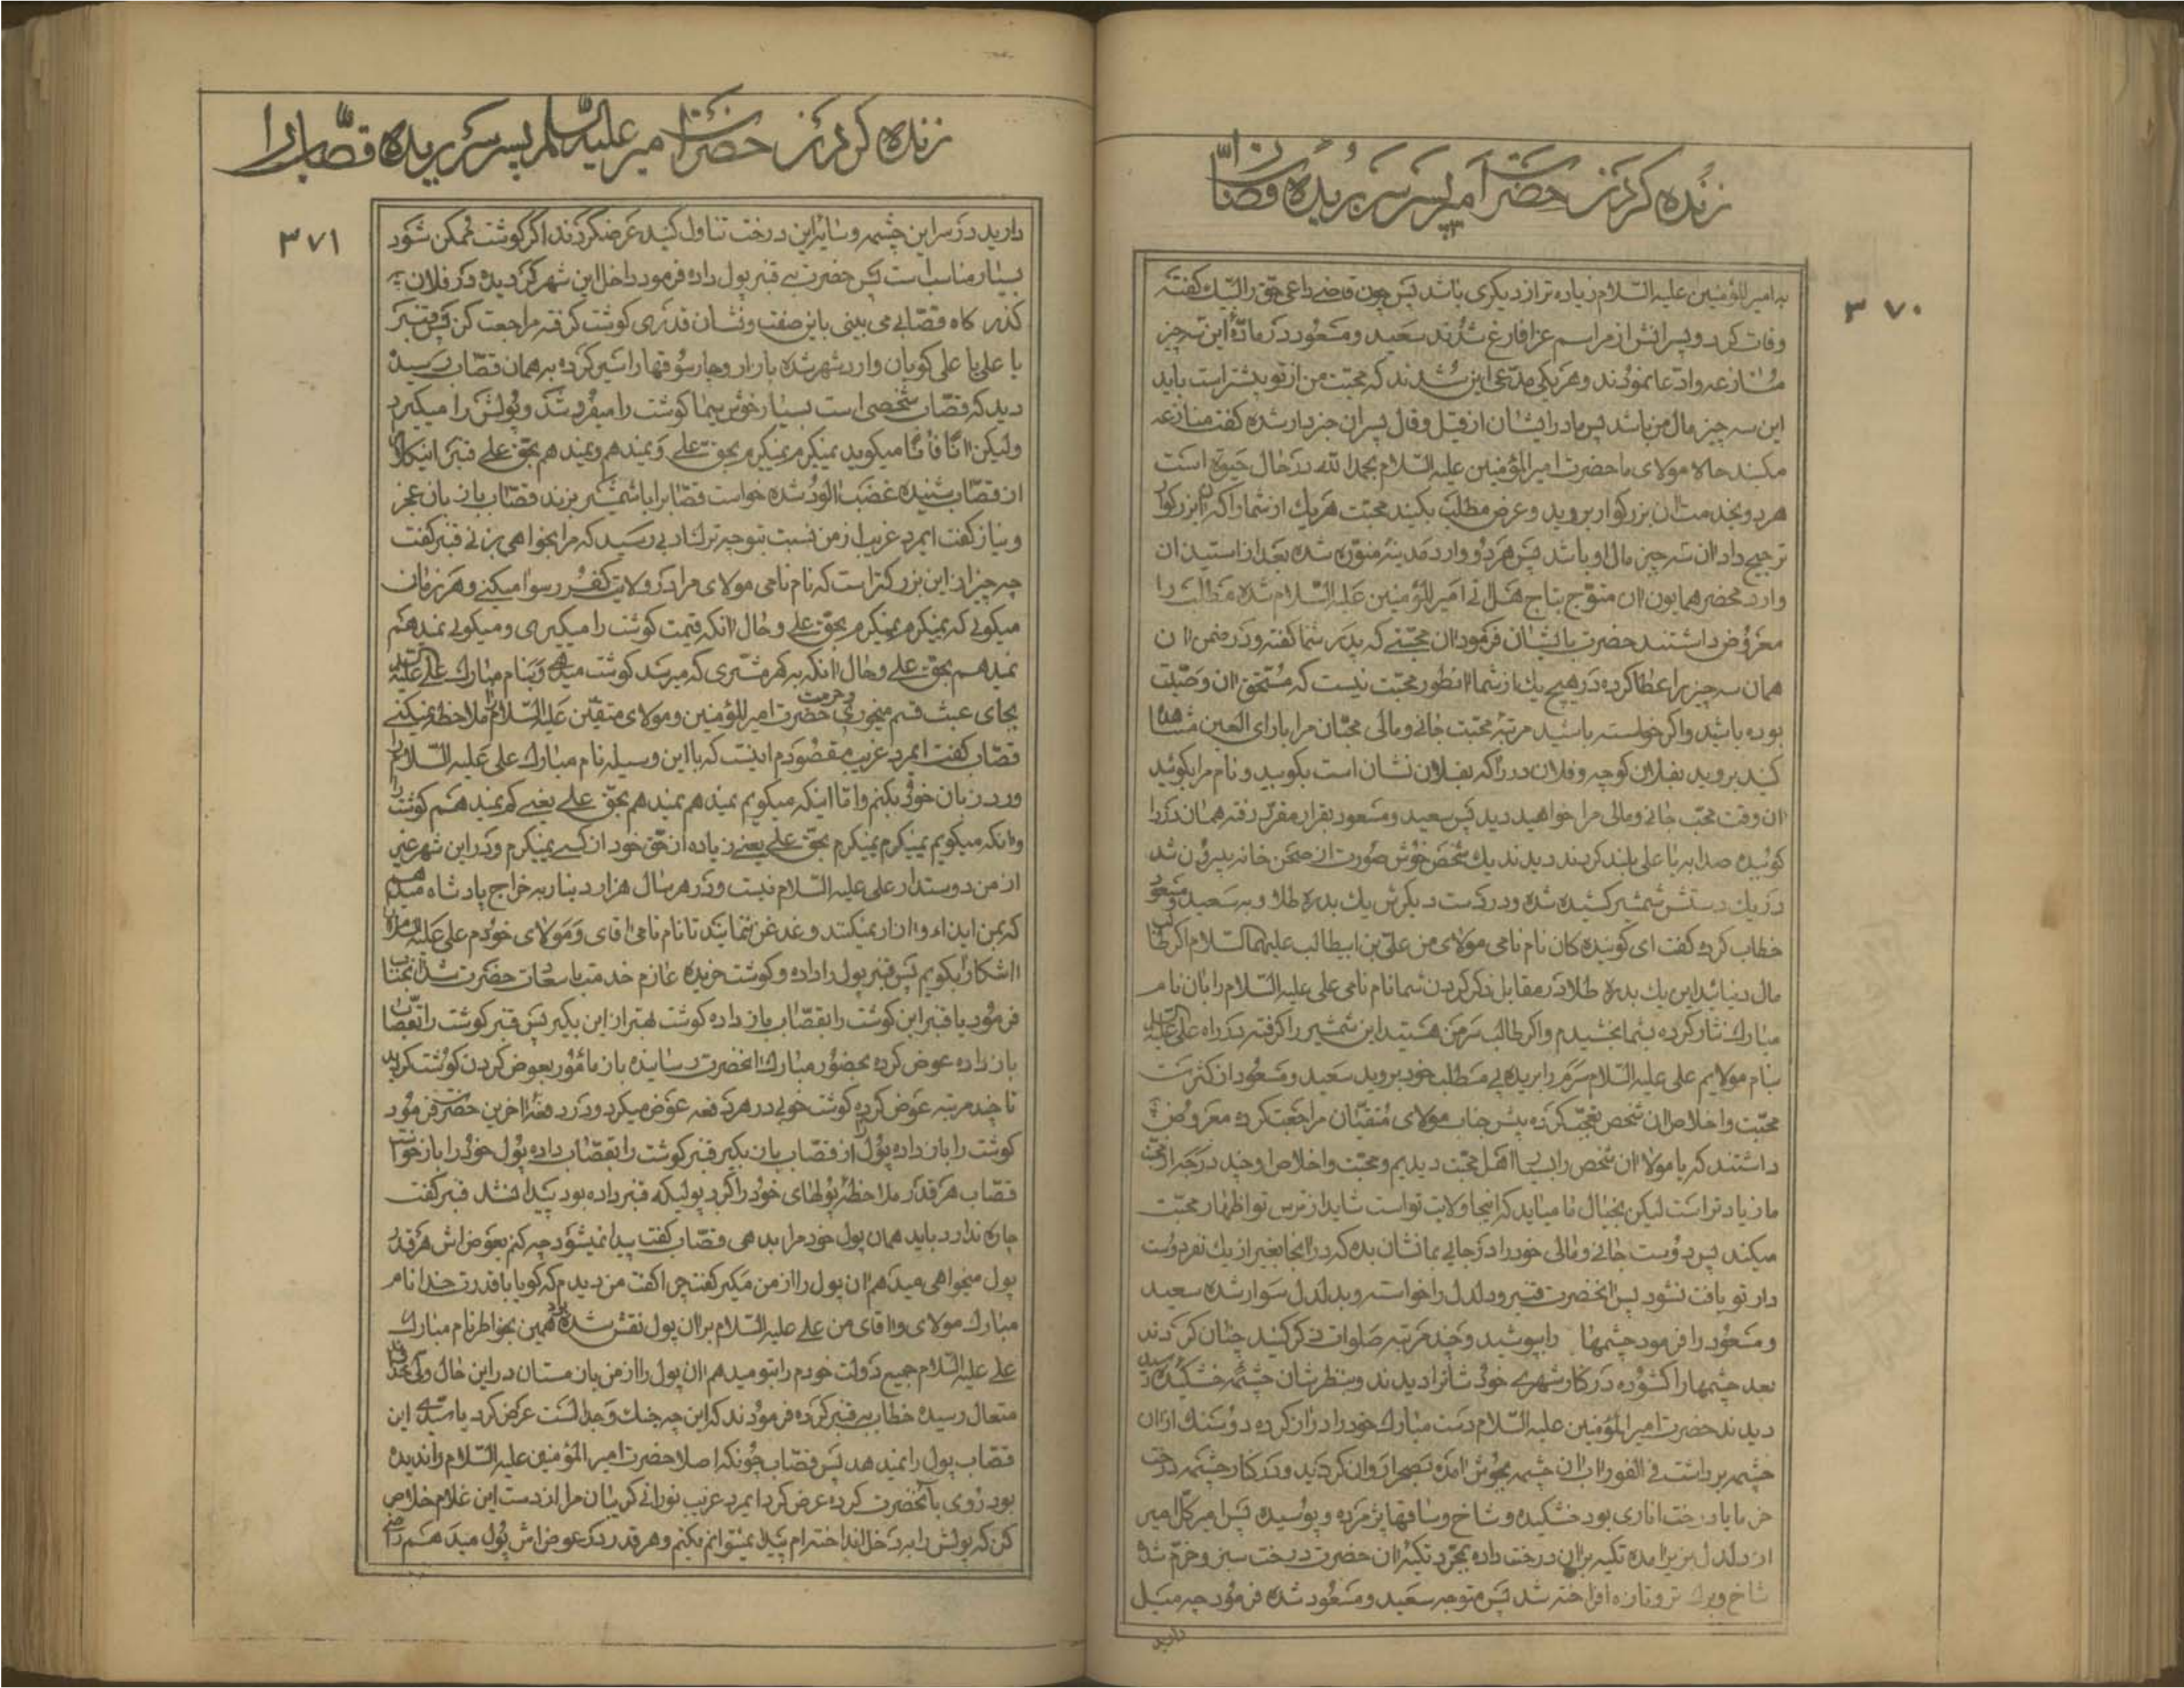 زنده کردن حضرت امیر پسر سر بریده قصاب
۳۷۰
به امیرالمؤمنین علیه السّلام زیاده تر از دیگری باشد پس چون قاضی داعی حق را لبیك گفته
وفات کرد و پسرانش از مراسم عزا فارغ شدند سعید و مسعود در مادّهٔ این سه چیز
منازعه و ادّعا نمودند و هر یکی مدّعی این شدند که محبّت من از تو بیشتر است باید
این سه چیز مال من باشد پس مادر ایشان از قیل و قال پسران خبردار شده گفت منازعه
مکنید حالا مولای ما حضرت امیرالمؤمنین علیه السّلام بحمدالله در حال حیوة است
هر دو بخدمت ان بزرکوار بروید و عرض مطلب بکنید محبّت هر یك از شما را که ان بزرکوار
ترجیح داد ان سه چیز مال او باشد پس هر دو وارد مدینهٔ منوّره شده بعد از استیذان
وارد محضر همایون ان متوّج بتاج هل اتی امیرالمؤمنین علیه السّلام شده مطالب را
معروض داشتند حضرت بایشان فرمود ان محبّتی که پدر شما گفته و در ضمن ان
همان سه چیز را عطا کرده در هیچ یك از شما انطور محبّت نیست که مستحق ان وصیّت
بوده باشید و اکر خواسته باشید مرتبهٔ محبّت جانی و مالی محبّان مرا بارای العین مشاهده
کنید بروید بفلان کوچه و فلان در را که بفلان نشان است بکوبید و نام مرا بکوئید
ان وقت محبّ جانی و مالی مرا خواهید دید پس سعید و مسعود بقرار مقرّر رفته همان در را
کوبیده صدا به یا علی بلند کردند دیدند یك شخص خوش صورت از صحن خانه بیرون شد
در یك دستش شمشیر کشیده شده و در دست دیکرش یك بدره طلا و به سعید و مسعود
خطاب کرده گفت ای کوینده کان نام نامی مولای من علیّ بن ابیطالب علیهما السلام اکر طالب
مال دنیائید این یك بدره طلا در مقابل ذکر کردن شما نام نامی علی علیه السّلام را بان نام
مبارك نثار کرده بشما بخشیدم و اکر طالب سر من هستید این شمشیر را کرفته در راه علی علیه السلام
بنام مولایم علی علیه السّلام سرم را بریده پی مطلب خود بروید سعید و مسعود از کثرت
محبّت و اخلاص ان شخص تعجّب کرده پیش جناب مولای متّقیان مراجعت کرده معروض
داشتند که یا مولا ان شخص را بسیار اهل محبّت دیدیم و محبّت و اخلاص او چند درجه از محبّت
ما زیادتر است لیکن بخیال ما میاید که اینجا ولایت تو است شاید از ترس تو اظهار محبّت
میکند پس دوست جانی و مالی خود را در جایی بما نشان بده که در انجا بغیر از یك نفر دوست
دار تو یافت نشود پس انحضرت قنبر و دلدل را خواسته و بدلدل سوار شده سعید
و مسعود را فرمود چشمها را بپوشید و چند مرتبه صلوات ذکر کنید چنان کردند
بعد چشمها را کشوده در کنار شهری خودشانرا دیدند و بنظرشان چشمهٔ خشکیده رسید
دیدند حضرت امیرالمؤمنین علیه السّلام دست مبارك خود را دراز کرده دو سنك از ان
چشمه برداشت فی الفور اب ان چشمه بجوش امده بصحرا روان کردید و در کنار چشمه درخت
خرما یا درخت اناری بود خشکیده و شاخ و ساقها پژمرده و پوسیده پس امیر کل امیر
از دلدل بزیر امده تکیه بر ان درخت داده بمجرّد تکیهٔ ان حضرت درخت سبز و خرّم شد
شاخ و برك تر و تازه افراخته شد پس متوجه سعید و مسعود شده فرمود چه میل
دارید
زنده کردن حضرت امیر علیه السّلام پسر سر بریده قصّاب را
۳۷۱
دارید در سر این چشمه و سایر این درخت تناول کنید عرض کردند اکر کوشت ممکن شود
بسیار مناسب است پس حضرت به قنبر پول داده فرمود داخل این شهر کردیده در فلان
کذر کاه قصّابی می بینی باین صفت و نشان قدری کوشت کرفته مراجعت کن پس قنبر
یا علی یا علی کویان وارد شهر شده بازار و چارسوقها را سیر کرده به همان قصّاب رسید
دید که قصّاب شخصی است بسیار خوش سیما کوشت را میفروشد و پولش را میکیرد
ولیکن انًا فانًا میکوید نمیکیرم نمیکیرم بحق علی و نمیدهم و نمیدهم بحق علی قنبر اینکلام را
از قصّاب شنیده غضب الود شده خواست قصّاب را با شمشیر بزند قصّاب با زبان عجز
و نیاز کفت ایمرد غریب از من نسبت بتو چه ترك ادبی رسید که مرا بخواهی بزنی قنبر کفت
چه چیز از این بزرکتر است که نام نامی مولای مرا در ولایت کفر رسوا میکنی و هر زمان
میکوئی که نمیکیرم نمیکیرم بحق علی و حال انکه قیمت کوشت را میکیری و میکوئی نمیدهم
نمیدهم بحق علی و حال انکه به هر مشتری که میرسد کوشت میدهی و بنام مبارك علی علیه السلام
بجای عبث قسم میخوری و حرمت حضرت امیرالمؤمنین و مولای متقیّن علیه السّلام را ملاحظه نمیکنی
قصّاب کفت ایمرد غریب مقصودم اینست که با این وسیله نام مبارك علی علیه السّلام را
ورد زبان خود بکنم و امّا اینکه میکویم نمیدهم نمیدهم بحق علی یعنی کم نمیدهم کوشت را
و انکه میکویم نمیکیرم نمیکیرم بحق علی یعنی زیاده از حق خود از کسی نمیکیرم و در این شهر غیر
از من دوستدار علی علیه السّلام نیست و در هر سال هزار دینار به خراج پادشاه میدهم
که بمن ایذاء و ازار نمیکنند و غدغن ننمایند تا نام نامی اقای و مولای خودم علی علیه السلام را
اشکارا بکویم پس قنبر پول را داده و کوشت خریده عازم خدمت با سعادت حضرت شد انجناب
فرمود یا قنبر این کوشت را بقصّاب باز داده کوشت بهتر از این بکیر پس قنبر کوشت را بقصّاب
باز داده عوض کرده بحضور مبارك انحضرت رسانیده باز مامور بعوض کردن کوشت کردید
تا چند مرتبه عوض کرده کوشت خوبی در هر دفعه عوض میکرد و در دفعهٔ اخرین حضرت فرمود
کوشت را باز داده پول را از قصّاب باز بکیر قنبر کوشت را بقصّاب داده پول خود را باز خواست
قصّاب هر قدر ملاحظهٔ پولهای خود را کرد پولیکه قنبر داده بود پیدا نشد قنبر کفت
چاره ندارد باید همان پول خود مرا بدهی قصّاب کفت پیدا نمیشود چه کنم بعوض اش هر قدر
پول میخواهی میدهم ان پول را از من مکیر کفت چرا کفت من دیدم که کویا با قدرت خدا نام
مبارك مولای و اقای من علی علیه السّلام بر ان پول نقش شده بود همین بخواطر نام مبارك
علی علیه السّلام جمیع دولت خودم را بتو میدهم ان پول را از من باز مستان در این حال ولی خداوند
متعال رسیده خطاب به قنبر کرده فرمودند که این چه جنك و جدالست عرض کرد یا سیّدی این
قصّاب پول را نمیدهد پس قصّاب چونکه اصلا حضرت امیرالمؤمنین علیه السّلام را ندیده
بود روی بانحضرت کرده عرض کرد ایمرد غریب نورانی کریبان مرا از دست این غلام خلاص
کن که پولش را به دخل انداخته ام پیدا نمیتوانم بکنم و هر قدر که عوض اش پول میدهم راضی